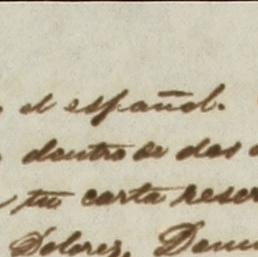 el español.
dentro de dos
tu carta reser
Dolores, Dan